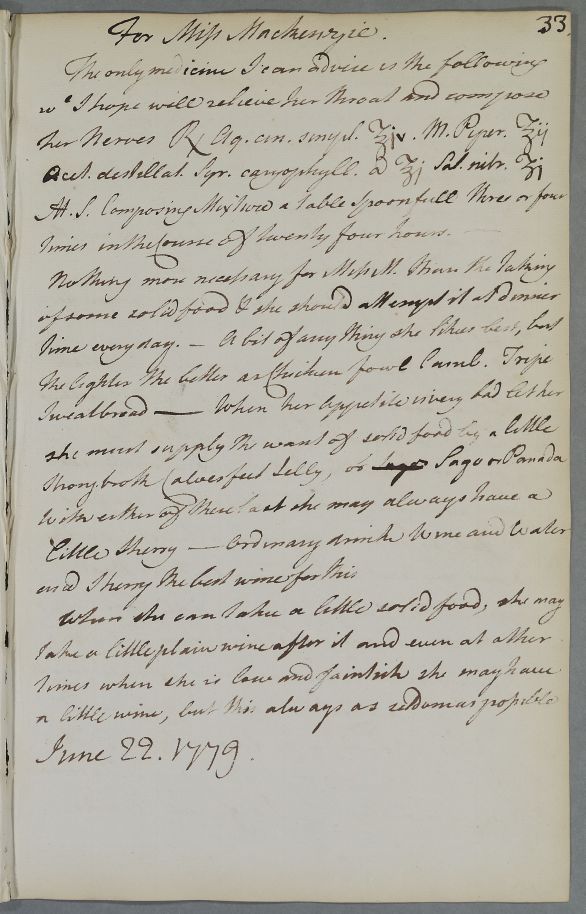 33.
For Miss Mackenzie.
The only medicine I can advice is the following
wc I hope will relieve her throat and compose
her Nerves ℞ Aq. cin. simpl. ℥iv. M. Piper. ℥ij
Acet. destillat. Syr. caryophyll. a ℥j Sal. nitr. ʒj
M. S. Composing Mixture a table spoonfull three or four
times in the Course of twenty four hours. —
Nothing more necessary for Miss M. than the taking
of some solid food & she should attempt it at dinner
time every day. — A bit of any thing she likes best, but
the lighter the better as Chicken fowl Lamb. Tripe
Sweatbread — When her Appetite is very bad let her
she must supply the want of solid food by a little
strong broth Calvesfeet Jelly, or Sago or Panada
With either of these last she may always have a
little Sherry — Ordinary drink Wine and Water
and Sherry the best wine for this
When she can take a little solid food, she may
take a little plain wine after it and even at other
times when she is low and faintish she may have
a little wine, but this always as seldom as possible
June 22. 1779.